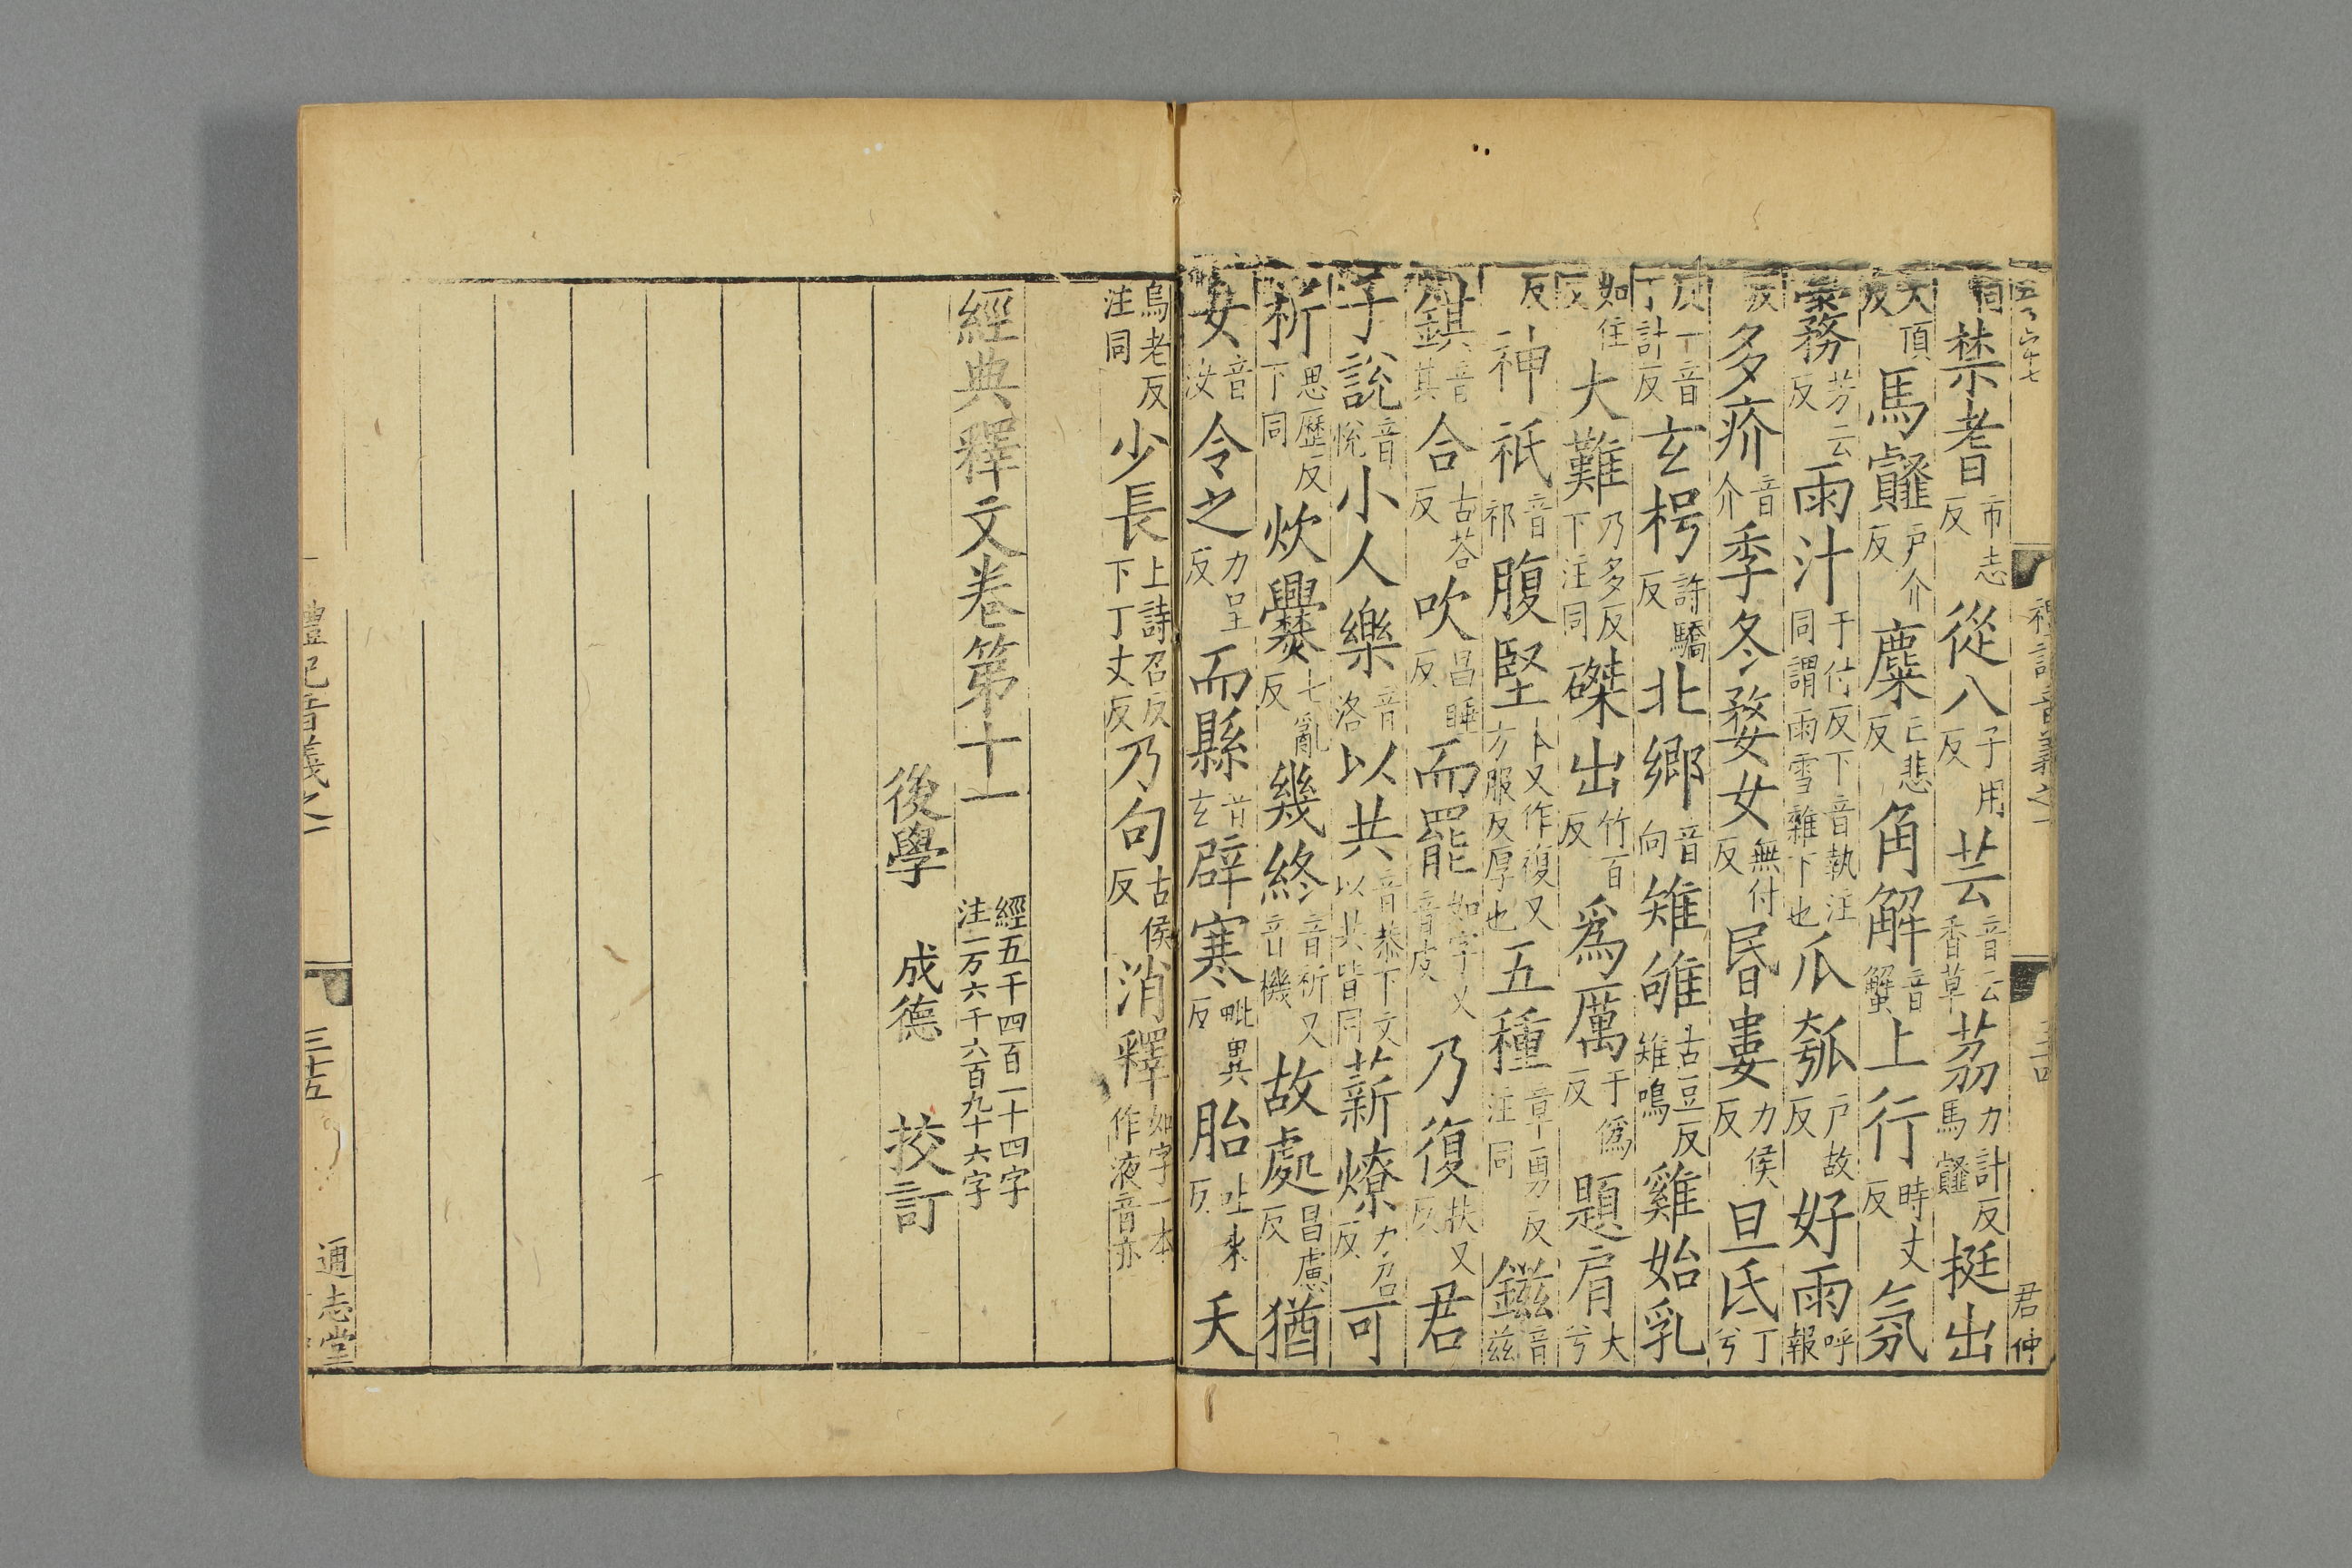 同禁耆市志反從八子用反芸音云香草茘力計反馬䪥挺出
大頂反馬䪥戶介反麋亡悲反角解音蟹上行時丈反氛
雺務芳云反雨汁于付反下音執注同謂雨雪雜下也瓜瓠戶故反好雨呼報
反多疥音介季冬婺女無付反昬婁力侯反旦氐丁兮
反一音丁計反玄枵許驕反北鄉音向雉雊古豆反雉鳴雞始乳
如住反大難乃多反下注同磔出竹百反爲厲于僞反題肩大兮
反神祇音祁腹堅卜又作複又方服反厚也五種章勇反注同鎡音兹
錤音其合古荅反吹昌睡反而罷如字又音皮乃復扶又反君
子說音悅小人樂音洛以共音恭下文以共皆同薪燎力召反可
析思歷反下同炊爨七亂反幾終音祈又音機故處昌慮反猶
女音汝令之力呈反而縣音玄辟寒毗異反胎吐来反夭
烏老反注同少長上詩召反下丁丈反乃句古侯反消釋如字一本作液音亦
經典釋文卷第十一 經五千四百一十四字注一万六千六百九十六字
後學 成德 挍訂
禮記音義之一
三十四
君仲
禮記音義之一
三十五
通志堂